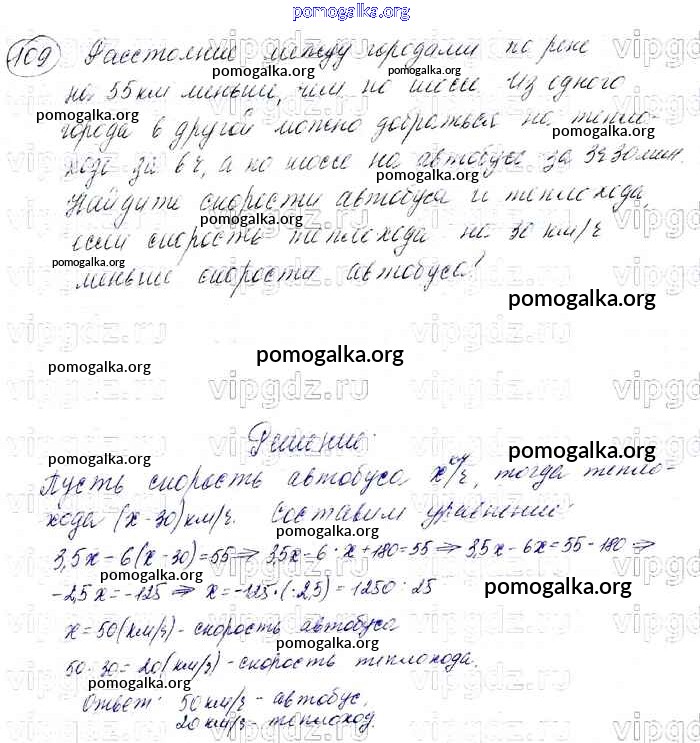 pomogalka.org
109 Расстояние между городами по реке
pomogalka.org pomogalka.org
на 55 км меньше, чем по шоссе. Из одного
pomogalka.org
города в другой можно добраться на тепло-
pomogalka.org
ходе за 6 ч, а по шоссе на автобусе за 3ч30мин.
pomogalka.org
Найдите скорости автобуса и теплохода,
pomogalka.org
если скорость теплохода на 30 км/ч
pomogalka.org
меньше скорости автобуса?
pomogalka.org
vipgdz.ru
pomogalka.org
pomogalka.org
vipgdz.ru
Решение:
pomogalka.org pomogalka.org
Пусть скорость автобуса x км/ч, тогда тепло-
хода (x-30) км/ч. Составим уравнение:
pomogalka.org pomogalka.org
3,5x-6(x-30)=55⇒3,5x-6·x+180=55⇒3,5x-6x=55-180⇒
pomogalka.org
-2,5x=-125⇒x=-125·(-2,5)=1250:25
pomogalka.org
x=50(км/ч)-скорость автобуса
pomogalka.org
50-30=20(км/ч)-скорость теплохода.
pomogalka.org
Ответ: 50км/ч-автобус,
20км/ч-теплоход.
pomogalka.org